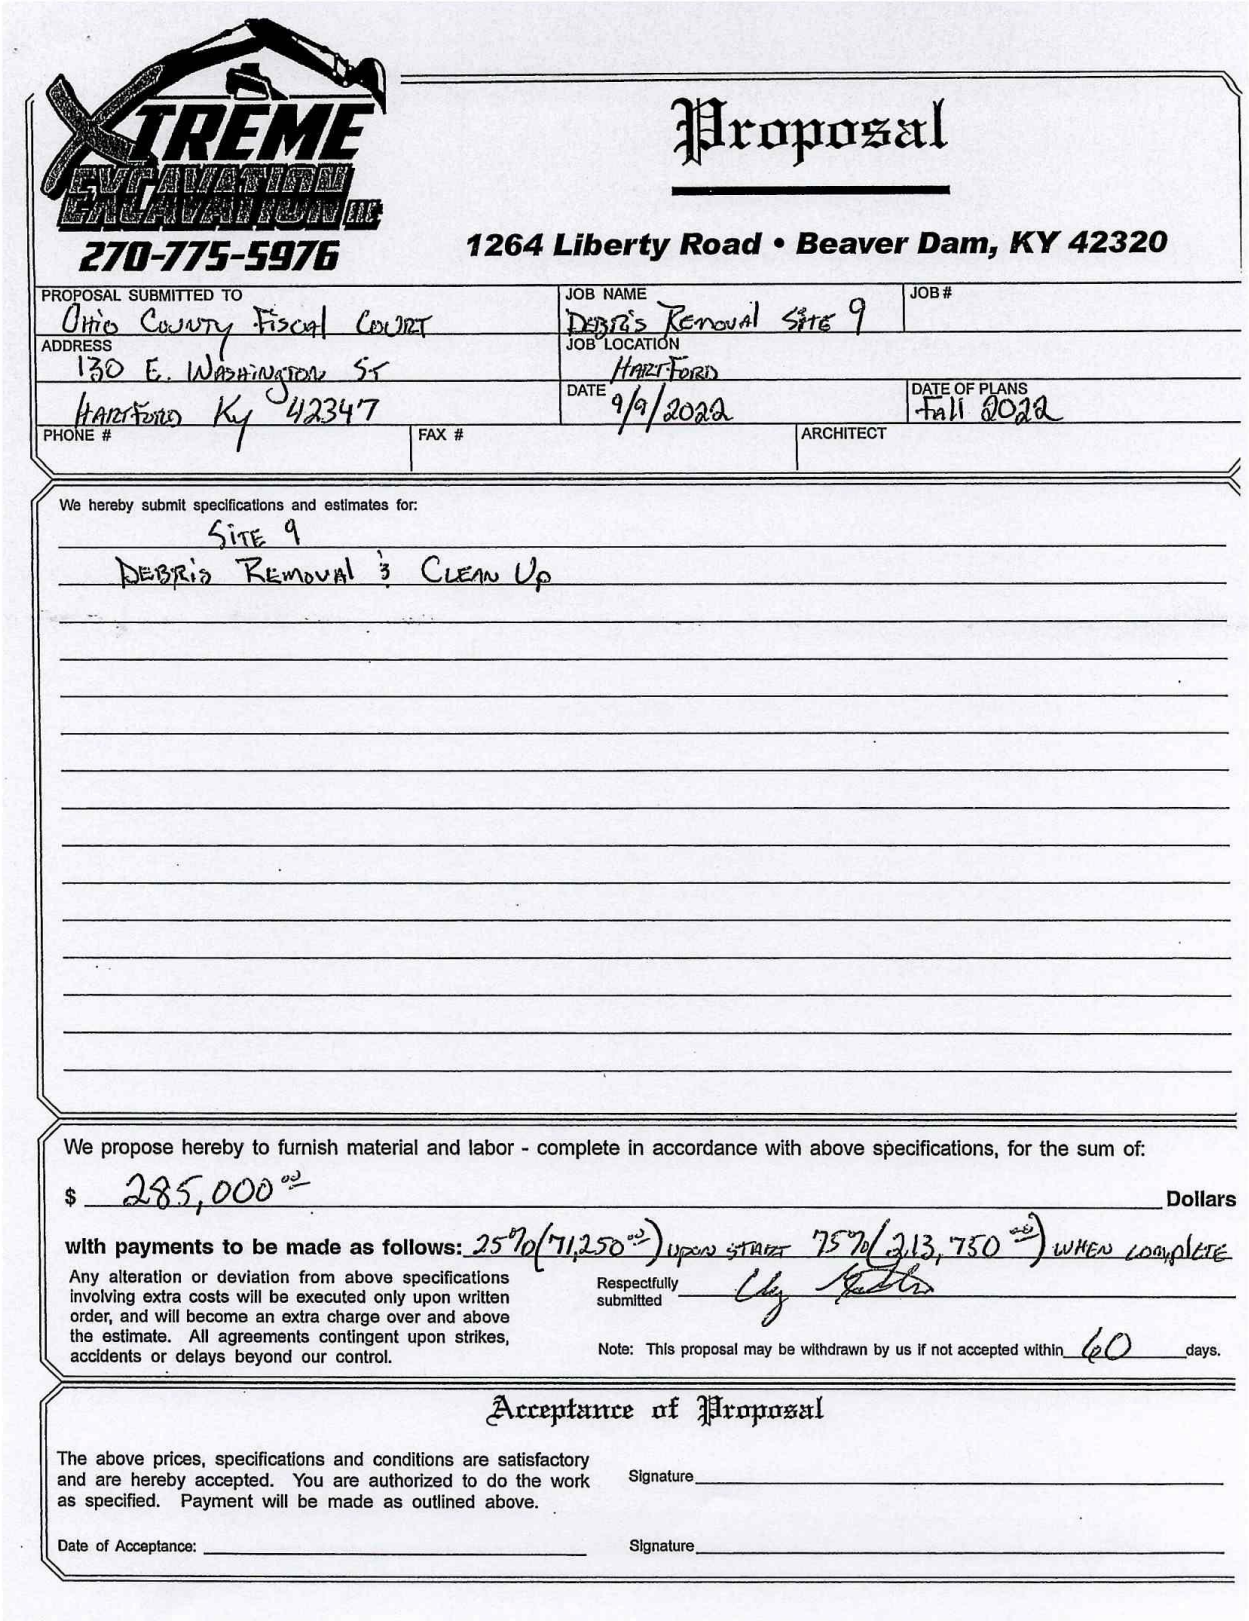 XTREME
EXCAVATION LLC
270-775-5976
Proposal
1264 Liberty Road • Beaver Dam, KY 42320
PROPOSAL SUBMITTED TO
Ohio County Fiscal Court
JOB NAME
Debris Removal Site 9
JOB #
ADDRESS
130 E. Washington St
JOB LOCATION
Hartford
Hartford Ky 42347
DATE
9/9/2022
DATE OF PLANS
Fall 2022
PHONE #
FAX #
ARCHITECT
We hereby submit specifications and estimates for:
Site 9
Debris Removal & Clean Up
We propose hereby to furnish material and labor - complete in accordance with above specifications, for the sum of:
$ 285,000 00 Dollars
with payments to be made as follows: 25% (71,250 00) upon start 75% (213,750 00) when complete
Any alteration or deviation from above specifications
involving extra costs will be executed only upon written
order, and will become an extra charge over and above
the estimate. All agreements contingent upon strikes,
accidents or delays beyond our control.
Respectfully
submitted
Note: This proposal may be withdrawn by us if not accepted within 60 days.
Acceptance of Proposal
The above prices, specifications and conditions are satisfactory
and are hereby accepted. You are authorized to do the work
as specified. Payment will be made as outlined above.
Signature
Date of Acceptance:
Signature